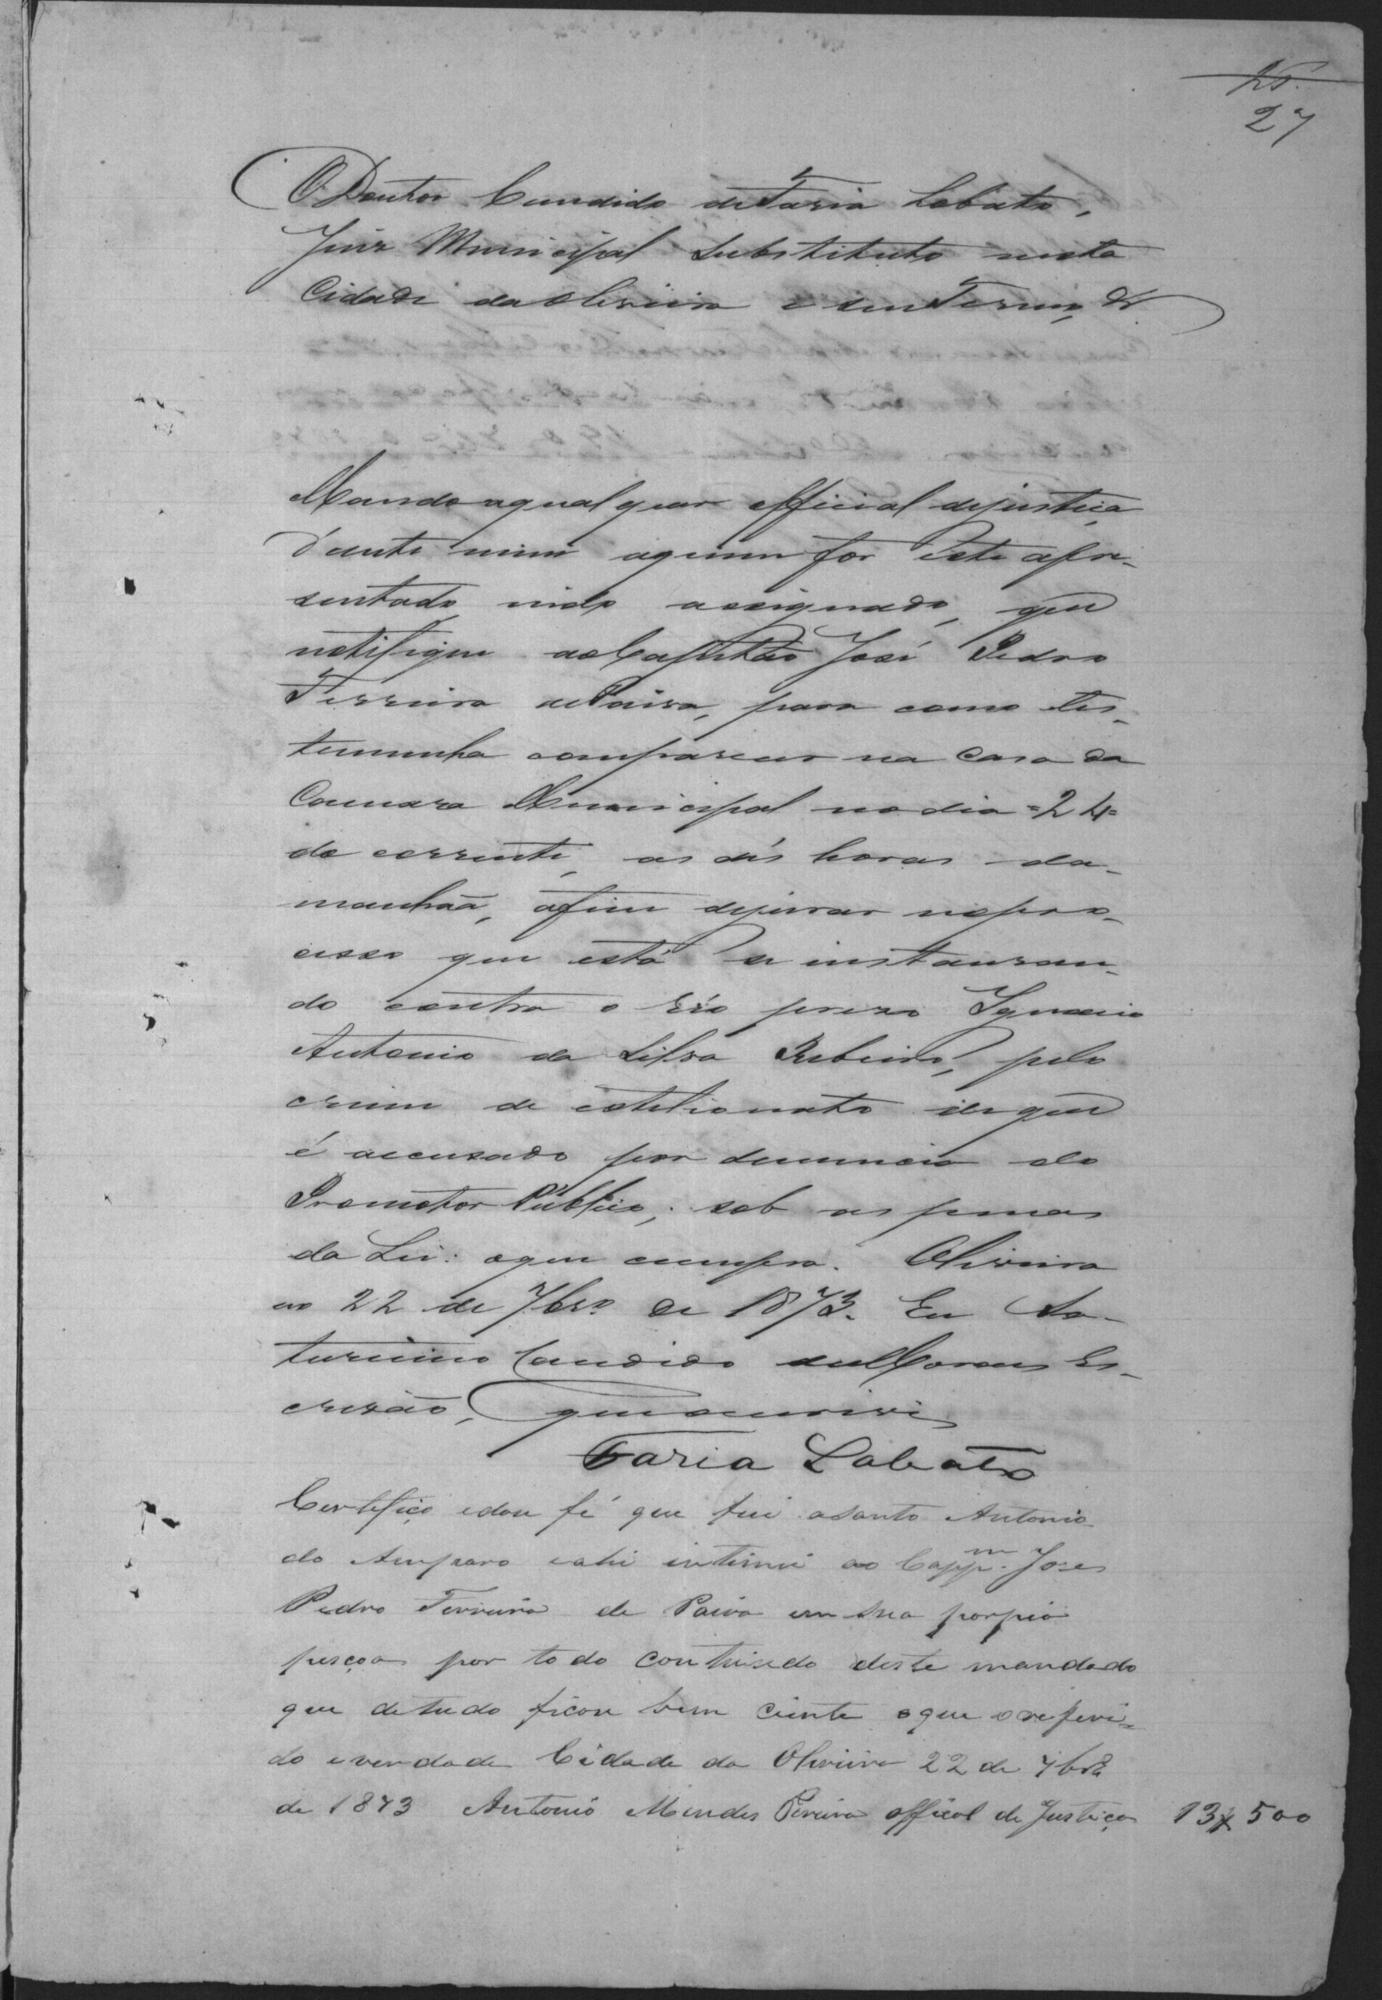 27
O Doutor Candido de Faria Lobato,
Juiz Municipal Substituto nesta
Cidade da Oliveira e seu Termo, &
Mando a qualquer official de justiça
d'ante mim a quem for este apre-
sentado indo assignado, que
notifique ao Capitão José Pedro
Ferreira de Paiva, para como tes-
temunha comparecer na Casa da
Camara Municipal no dia =24=
do corrente, as dés horas da
manhãa, afim de jurar no pro-
cesso que está se instauran-
do contra o Réo prezo Ignacio
Antonio da Silva Ribeiro, pelo
crime de estelionato de que
é accusado por denuncia do
Promotor Publico; sob as penas
da Lei: o que cumpra. Oliveira
22 de 7brº de 1873. Eu Sa-
turnino Candido de Moraes Es-
crivão, que escrivi
Faria Lobato
Certifico e dou fé que fui a Santo Antonio
do Amparo e ahi intimei ao Cappm. Jose
Pedro Ferreira de Paiva em sua porpia
peçoa por todo contheudo deste mandado
que de tudo ficou bem ciente o que o referi-
do e verdade Cidade da Oliveira 22 de 7brº
de 1873 Antonio Mendes Pereira offical de Justiça 13$500